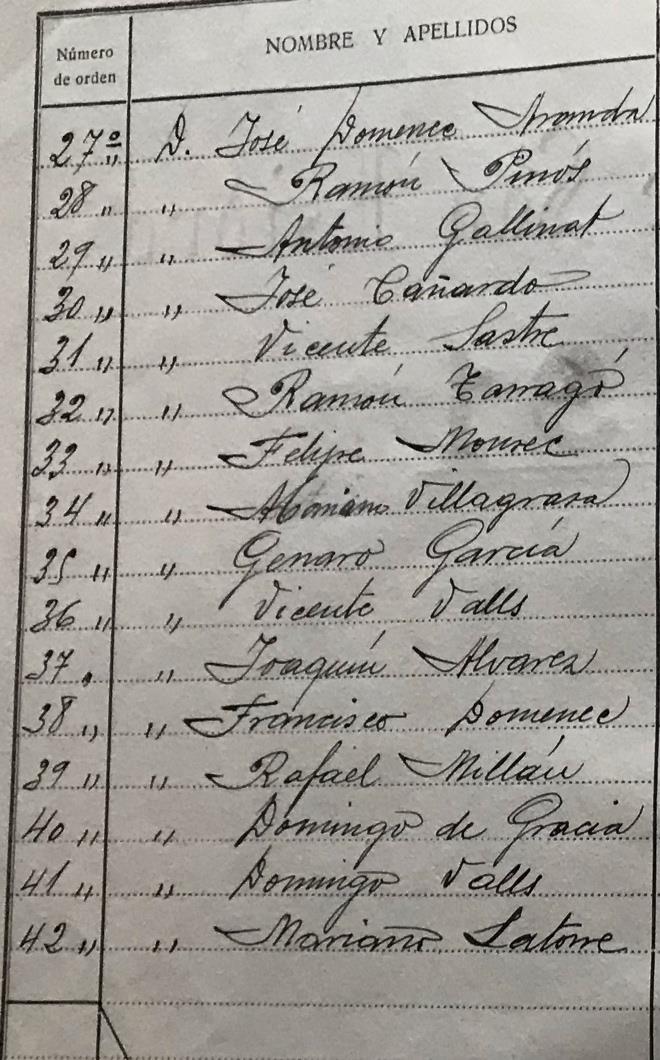 Número de orden
NOMBRE Y APELLIDOS
27º " D. José Domenec Aranda
28 " " Ramón Pinós
29 " " Antonio Gallinat
30 " " José Cañardo
31 " " Vicente Sastre
32 " " Ramón Tarragó
33 " " Felipe Monrec
34 " " Mariano Villagrasa
35 " " Genaro García
36 " " Vicente Valls
37 " " Joaquín Alvarez
38 " " Francisco Domenec
39 " " Rafael Millán
40 " " Domingo de Gracia
41 " " Domingo Valls
42 " " Mariano Latorre